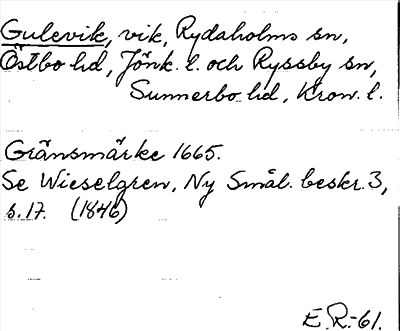 Gulevik, vik, Rydaholms sn,
Östbo hd, Jönk. l. och Ryssby sn,
Sunnerbo hd, Kron. l.
Gränsmärke 1665.
Se Wieselgren, Ny Smål. beskr. 3,
s. 17. (1846)
E. R.-61.